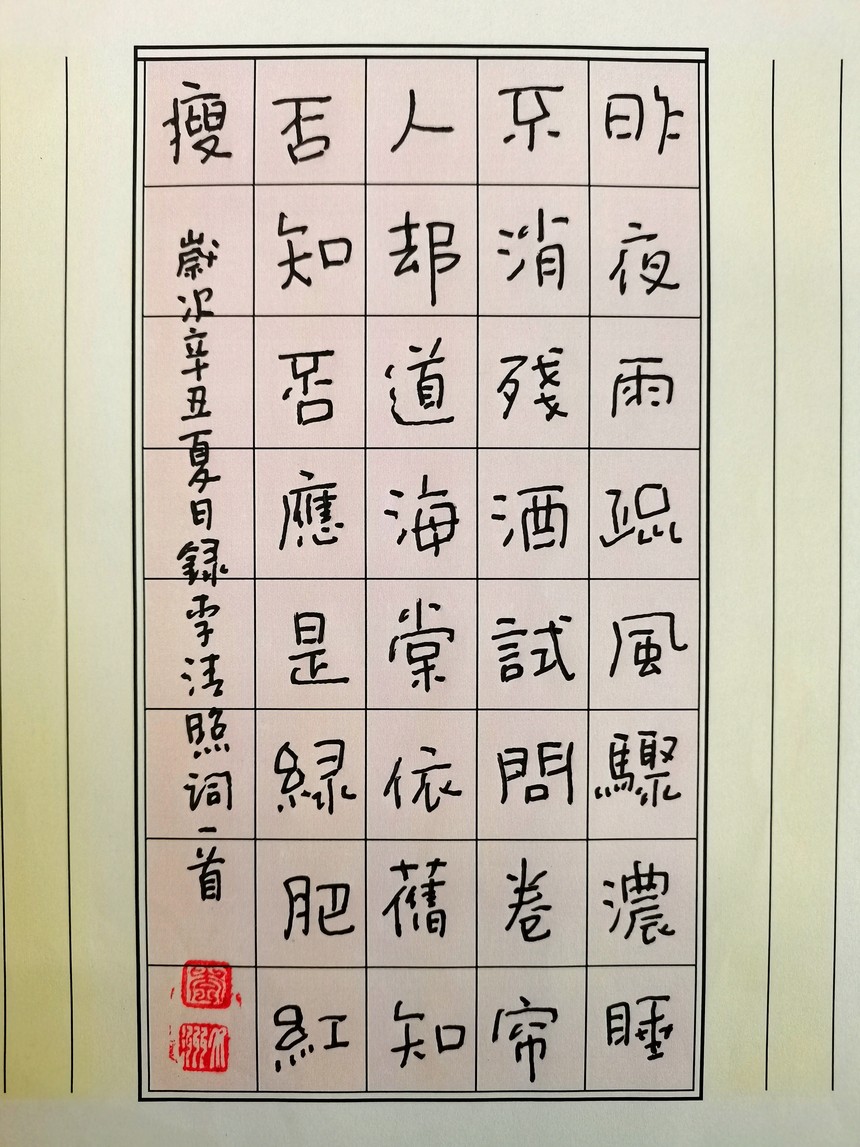 昨夜雨疏風驟濃睡
不消殘酒試問卷帘
人却道海棠依舊知
否知否應是緑肥紅
瘦
歲次辛丑夏日録李清照词一首